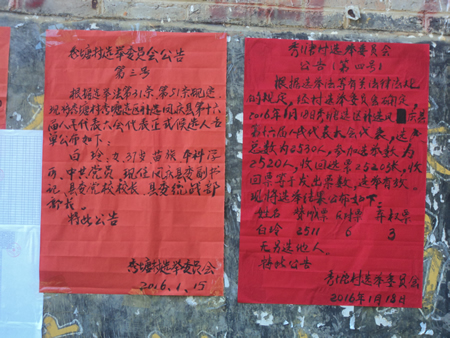 秀塘村选举委员会公告
第三号
根据选举法第31条第51条规定,
现将秀塘村秀塘选区补选凤凰县第十六
届人民代表大会代表正式候选人名
单公布如下:
白玲,女,37岁,苗族,本科学
历,中共党员,现任凤凰县委副书
记,县委党校校长,县委统战部
部长。
特此公告
秀塘村选举委员会
2016.1.15
秀塘村选举委员会
公告(第四号)
根据选举法等有关法律法规
的规定,经村选举委员会确定,
2016年1月18日秀塘选区补选凤凰县
第十六届人民代表大会代表,选民
总数为2530人,参加选举数为
2520人,收回选票2520张,收
回票等于发出票数,选举有效。
现将选举结果公布如下:
姓名 赞成票 反对票 弃权票
白玲 2511 6 3
无另选他人。
特此公告
秀塘村选举委员会
2016年1月18日